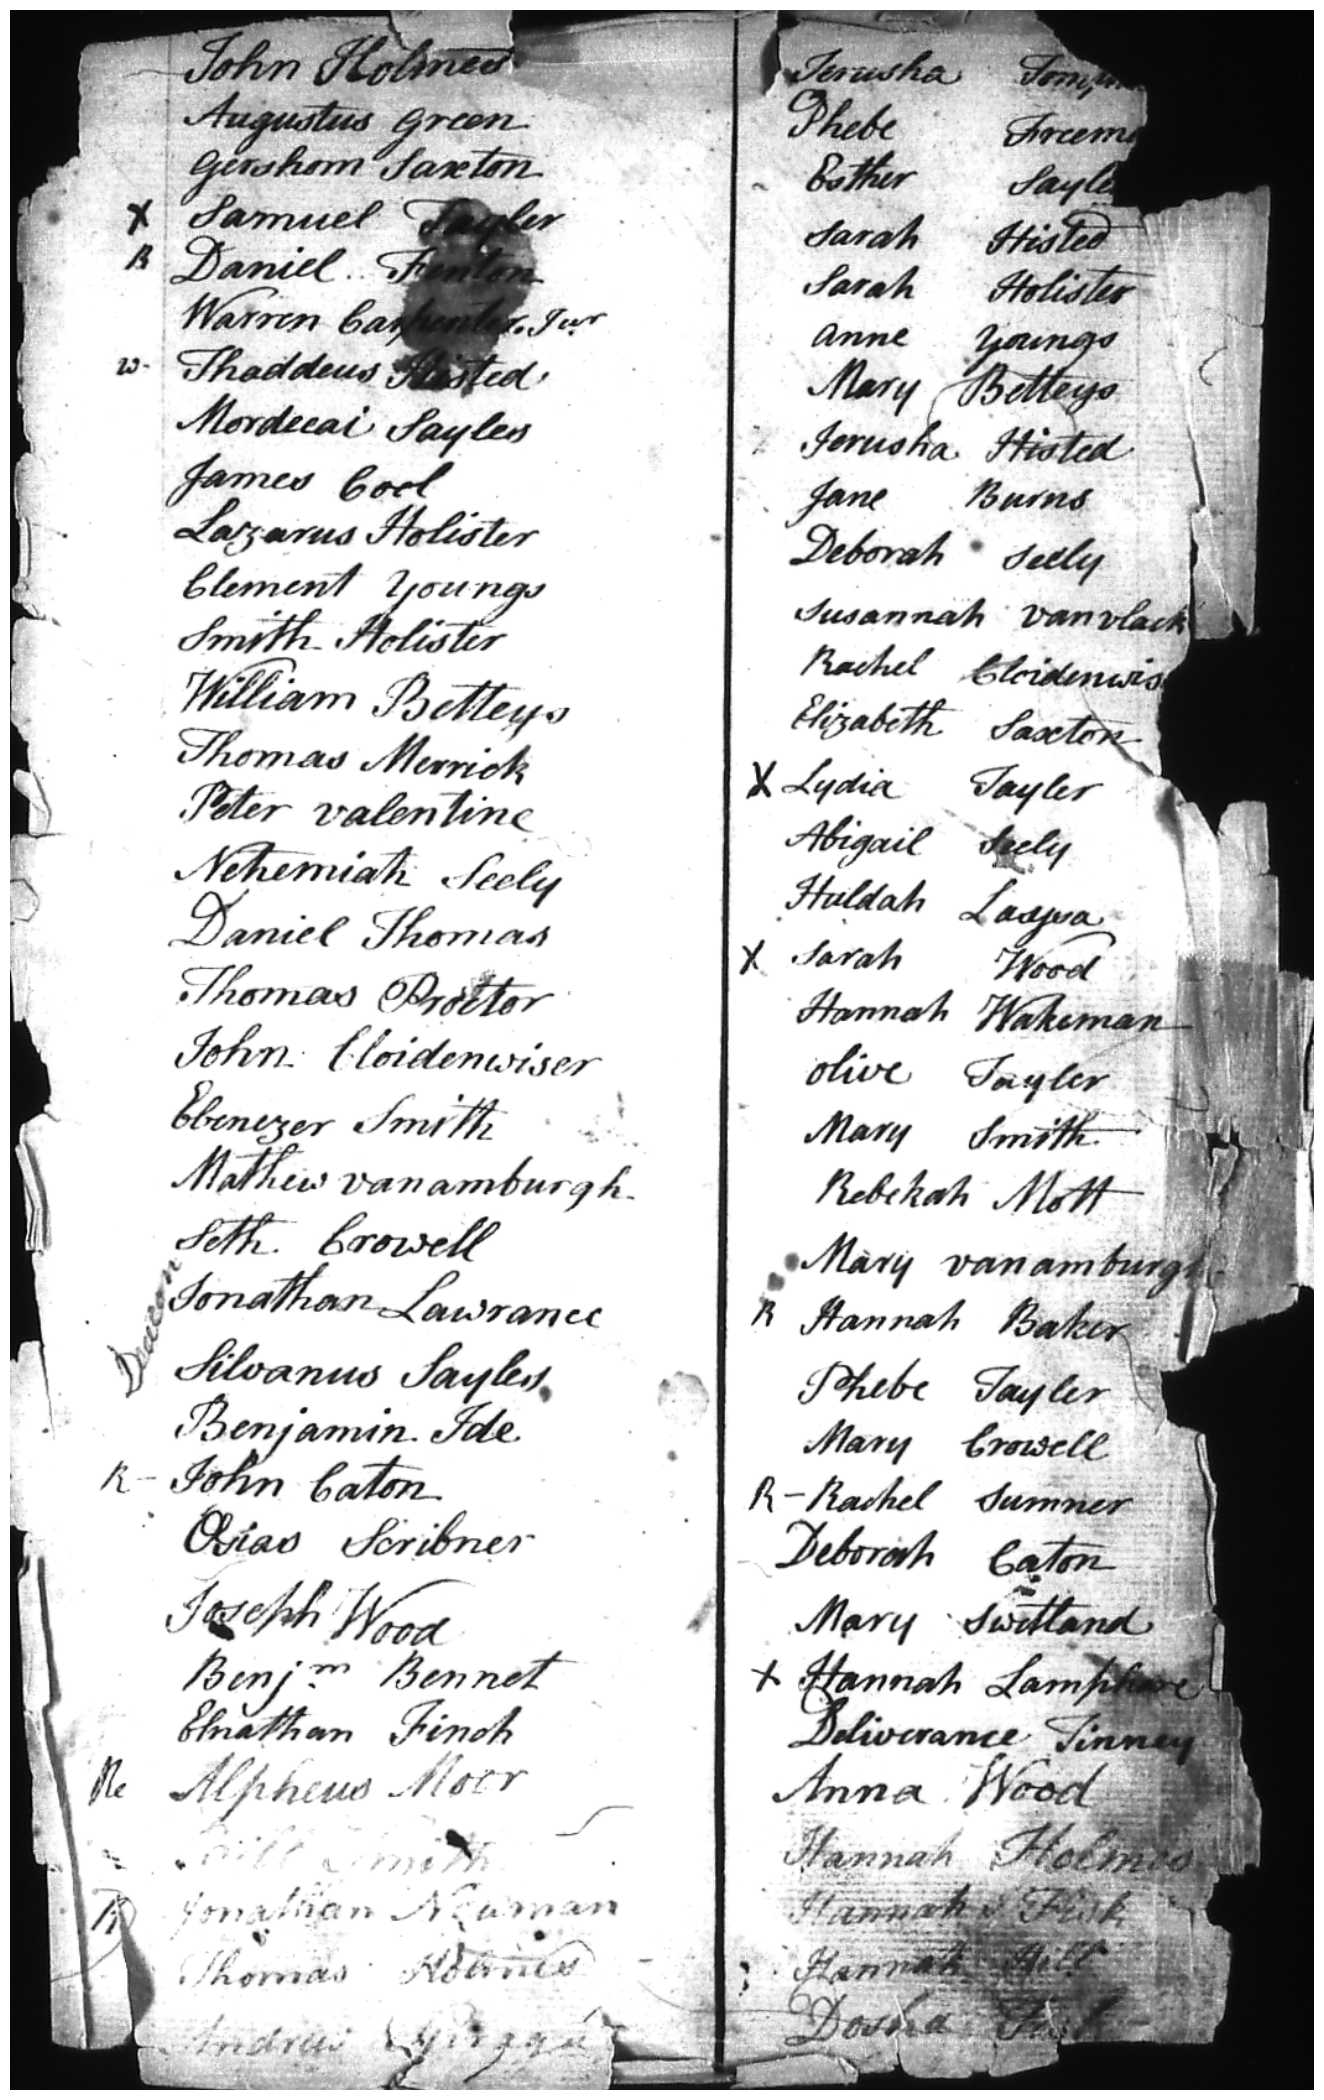 John Holmes
Augustus Green
Gershom Saxton
X Samuel Tayler
R Daniel Fenton
Warren Carpenter Jur
w- Thaddeus Histed
Mordecai Sayles
James Cool
Lazarus Holister
Clement Youngs
Smith Holister
William Betteys
Thomas Merrick
Peter valentine
Nehemiah Seely
Daniel Thomas
Thomas Proctor
John Cloidenwiser
Ebenezer Smith
Mathew vanamburgh
Seth Crowell
Deacon Jonathan Lawrance
Silvanus Sayles
Benjamin Ide
R- John Caton
Osias Scribner
Joseph Wood
Benjm Bennet
Elnathan Finch
Re Alpheus Moor
Smith
R Jonathan Newman
Thomas Holmes
Andrew
Jerusha
Phebe Freem
Esther Sayle
Sarah Histed
Sarah Holister
Anne Youngs
Mary Betteys
Jerusha Histed
Jane Burns
Deborah Seely
Susannah vanvlack
Rachel Cloidenwis
Elizabeth Saxton
X Lydia Tayler
Abigail Seely
Huldah
X Sarah Wood
Hannah Wakeman
olive Tayler
Mary Smith
Rebekah Mott
Mary vanamburgh
R Hannah Baker
Phebe Tayler
Mary Crowell
R- Rachel Sumner
Deborah Caton
Mary Switland
X Hannah Lamphare
Deliverance Tinney
Anna Wood
Hannah Holmes
Hannah Fisk
Hannah Hill
Dosha Fisk